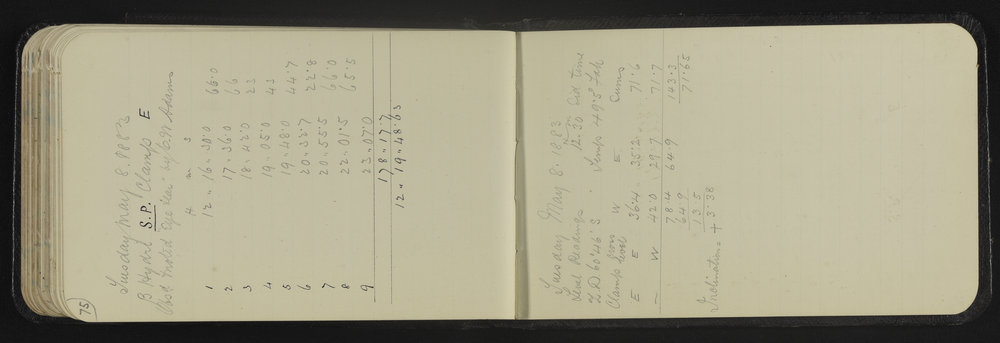 75
Tuesday May 8. 1883
β Hydri S.P. Clamp E
Obsd noted Eye & Ear by C. W. Adams
H m s
1 12 16 30.0 66.0
2 17 36.0 66
3 18 42.0 23
4 19 05.0 43
5 19 48.0 44.7
6 20 32.7 22.8
7 20 55.5 66.0
8 22 01.5 65.5
9 23 07.0
178 17.7
12 19 48.63
Tuesday May 8. 1883
Level Readings 12.30 Sid time
Z.D 60°46'.3 Temp 49°.5 Fah
Clamp from level W E Sums
E E 36.4 35.2 71.6
– W 42.0 29.7 71.7
78.4 64.9 143.3
64.9 71.65
13.5
Inclination = + 3.38